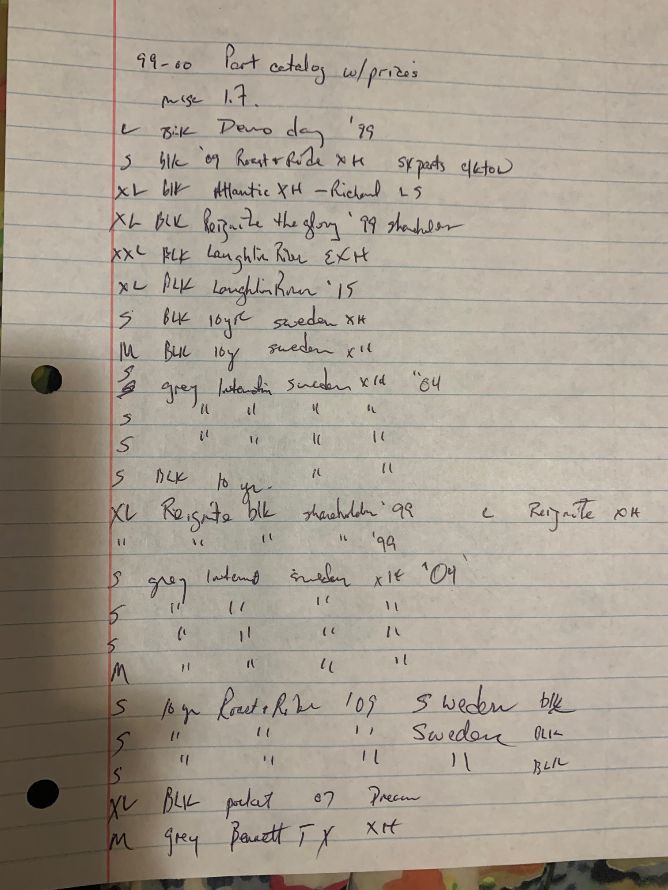 99-00 Part catalog w/prizes
misc 1.7.
L Blk Demo day '99
S blk '09 Roast + Ride XH SX parts
XL blk Atlantic XH - Richard LS
XL BLK Reignite the glory '99 shareholder
XXL BLK Laughlin River EXH
XL BLK Laughlin River '15
S BLK 10yr sweden XH
M BLK 10y sweden XH
S grey sweden XH "04
S " " " "
S " " " "
S BLK 10 yr. " "
XL Reignite blk shareholder '99 L Reignite XH
" " " " '99
S grey sweden XH '04'
S " " " "
S " " " "
M " " " "
S 10 yr Roast + Ride '09 Sweden blk
S " " " Sweden BLK
S " " " " BLK
XL BLK pocket 07
M grey Bennett TX XH